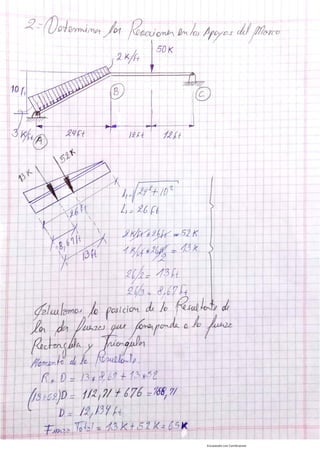 2= Determinar las Reacciones en los Apoyos del Marco
50 K
2 K/ft
10 ft
B
C
3 K/ft
A
24ft
12ft
12ft
13 K
52K
26ft
8,67ft
13ft
L₁=√24²+10²
L₁= 26ft
2K/ft*26ft = 52K
1K/ft*26ft/2 = 13K
26/2= 13ft
26/3= 8,67ft
Calculamos la posicion de la Resultante de
las dos fuerzas que Corresponde a la fuerza
Rectangula y Triangular
Momento de la Resultante
R * D = 13*8.67 + 13*52
(13+52)D = 112,71 + 676 = 788,71
D = 12,134 ft
Fuerza Total = 13K + 52K = 65K
Escaneado con CamScanner